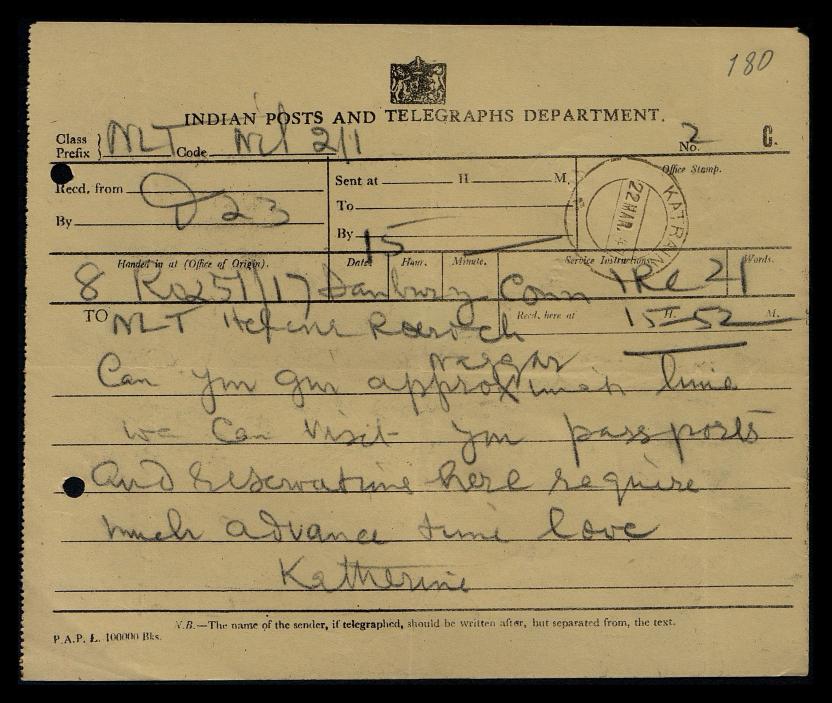 180
INDIAN POSTS AND TELEGRAPHS DEPARTMENT.
Class Prefix } NLT Code Nil 2/1 No. 2 C.
Recd. from 23
By
Sent at H. M.
To
By 15
Office Stamp.
KATRAIN
22 MAR.
Handed in at (Office of Origin). Date. Hour. Minute. Service Instructions. Words.
8 251/17 Danbury Conn 21
TO NLT Helene Roerich Recd. here at 15 H. 52 M.
Naggar
Can you giv approximate time
we can visit you passports
and reservations here require
much advance time love
Katherine
N.B.—The name of the sender, if telegraphed, should be written after, but separated from, the text.
P.A.P. L. 100000 Bks.